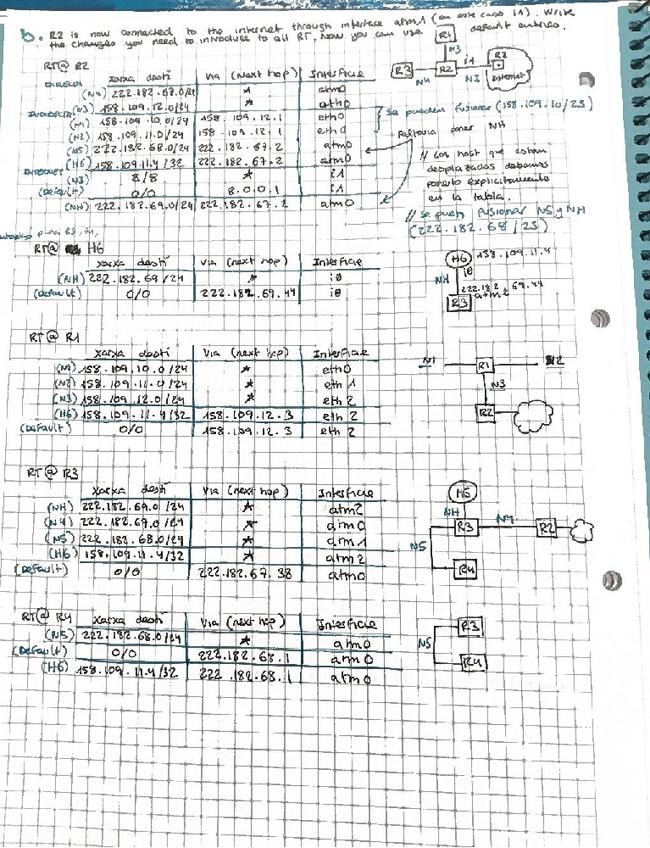 b. R2 is now connected to the internet through interface atm1 (en este caso i1). Write
the changes you need to introduce to all RT, now you can use default entries.
R1
N3
R3 N4 R2 i1 N3 R?
internet
RT@ R2
xarxa destí Via (Next hop) Interfície
(N4) 222.182.67.0/24 * atm0
(N3) 158.109.12.0/24 * eth0
(N1) 158.109.10.0/24 158.109.12.1 eth0
(N2) 158.109.11.0/24 158.109.12.1 eth0
(N5) 222.182.68.0/24 222.182.67.2 atm0
(H6) 158.109.11.4/32 222.182.67.2 atm0
(N3) 8/8 * i1
(Default) 0/0 8.0.0.1 i1
(NH) 222.182.69.0/24 222.182.67.2 atm0
Se pueden fusionar (158.109.10/23)
Faltaria poner NH
// Los host que estan
desplazados debemos
ponerlo explicitamente
en la tabla.
// Se pueden fusionar N5 y NH
(222.182.68/23)
RT@ H6
xarxa destí Via (next hop) Interfície
(NH) 222.182.69/24 * i0
(Default) 0/0 222.182.69.44 i0
H6 158.109.11.4
i0
NH
222.182.69.44
R3 atm2
RT@ R1
xarxa destí Via (next hop) Interfície
(N1) 158.109.10.0/24 * eth0
(N2) 158.109.11.0/24 * eth1
(N3) 158.109.12.0/24 * eth2
(H6) 158.109.11.4/32 158.109.12.3 eth2
(Default) 0/0 158.109.12.3 eth2
N1 R1 N2
N3
R2
RT@ R3
xarxa destí Via (next hop) Interfície
(NH) 222.182.69.0/24 * atm2
(N4) 222.182.67.0/24 * atm0
(N5) 222.182.68.0/24 * atm1
(H6) 158.109.11.4/32 * atm2
(Default) 0/0 222.182.67.38 atm0
H6
NH
R3 N4 R2
N5
R4
RT@ R4
xarxa destí Via (next hop) Interfície
(N5) 222.182.68.0/24 * atm0
(Default) 0/0 222.182.68.1 atm0
(H6) 158.109.11.4/32 222.182.68.1 atm0
R3
N5
R4